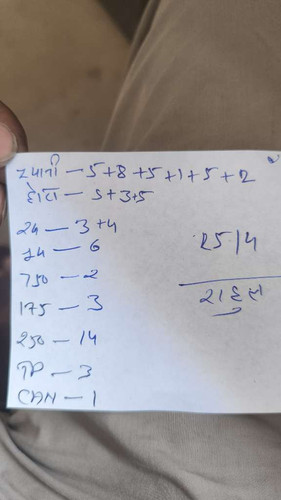 રમાની - 5+8+5+1+5+2
હોટા - 5+3+5
24 - 3+4
14 - 6
750 - 2
175 - 3
250 - 14
TP - 3
CAN - 1
25/4
રાહુલ